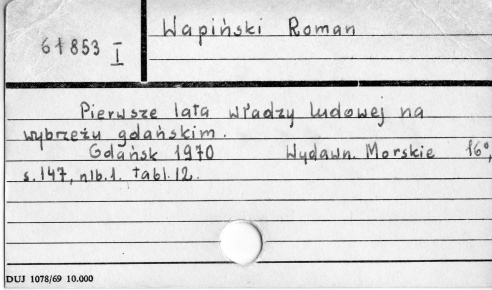 61853 I
Wapiński Roman
Pierwsze lata władzy ludowej na
wybrzeżu gdańskim.
Gdańsk 1970 Wydawn. Morskie 16°,
s.147, nlb.1. tabl.12.
DUJ 1078/69 10.000